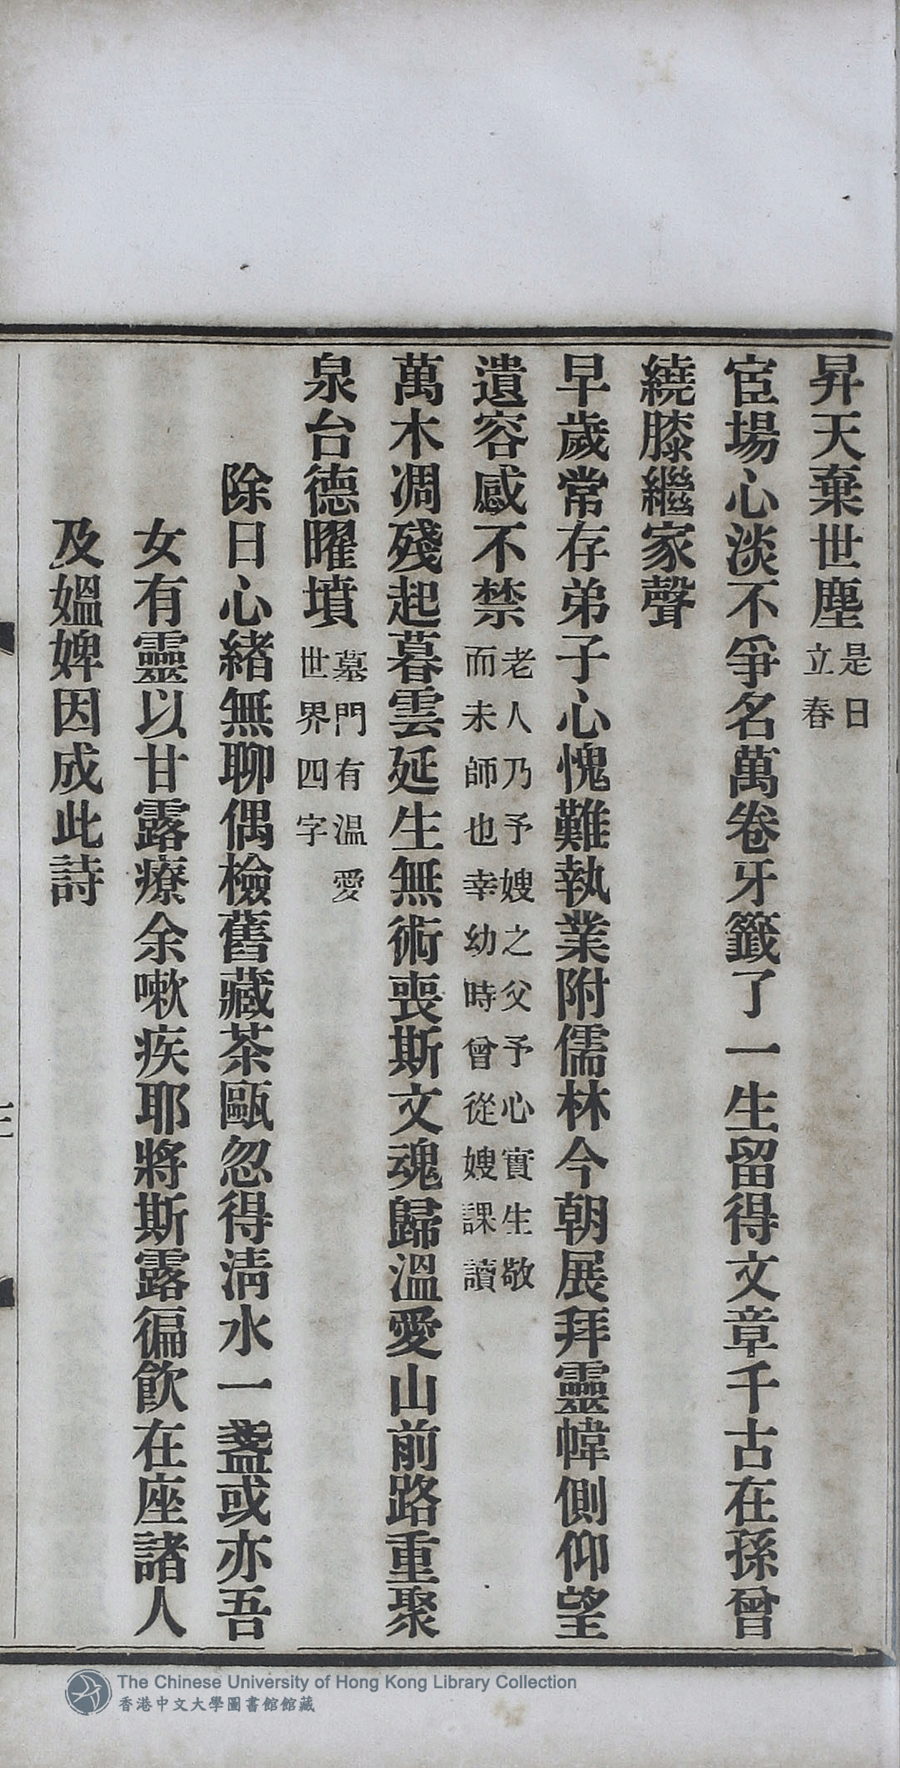 昇天棄世塵是日立春
宦場心淡不爭名萬卷牙籤了一生留得文章千古在孫曾
繞膝繼家聲
早歲常存弟子心愧難執業附儒林今朝展拜靈幃側仰望
遺容感不禁老人乃予嫂之父予心實生敬而未師也幸幼時曾從嫂課讀
萬木凋殘起暮雲延生無術喪斯文魂歸溫愛山前路重聚
泉台德曜墳墓門有溫愛世界四字
除日心緒無聊偶檢舊藏茶甌忽得淸水一盞或亦吾
女有靈以甘露療余嗽疾耶將斯露徧飮在座諸人
及媼婢因成此詩
三
The Chinese University of Hong Kong Library Collection
香港中文大學圖書館館藏